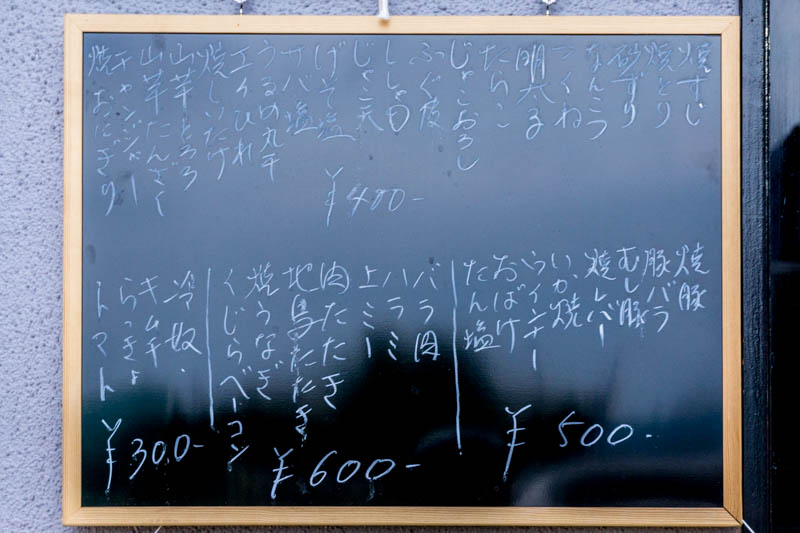 焼すじ
焼とり
砂ずり
なんこつ
つくね
明太子
たらこ
じゃこおろし
ふぐ皮
ししゃも
じゃこ天
げそ塩
サバ塩
うるめ丸干
エイひれ
焼しいたけ
山芋とろろ
山芋たんざく
チャンジャー
焼おにぎり
¥400-
焼豚
豚バラ
むし豚
焼レバー
いか焼
ウインナー
おばけ
たん塩
¥500-
バラ肉
ハラミ
上ミミー
肉たたき
地鳥たたき
焼うなぎ
くじらベーコン
¥600-
冷奴
キムチ
らっきょ
トマト
¥300-